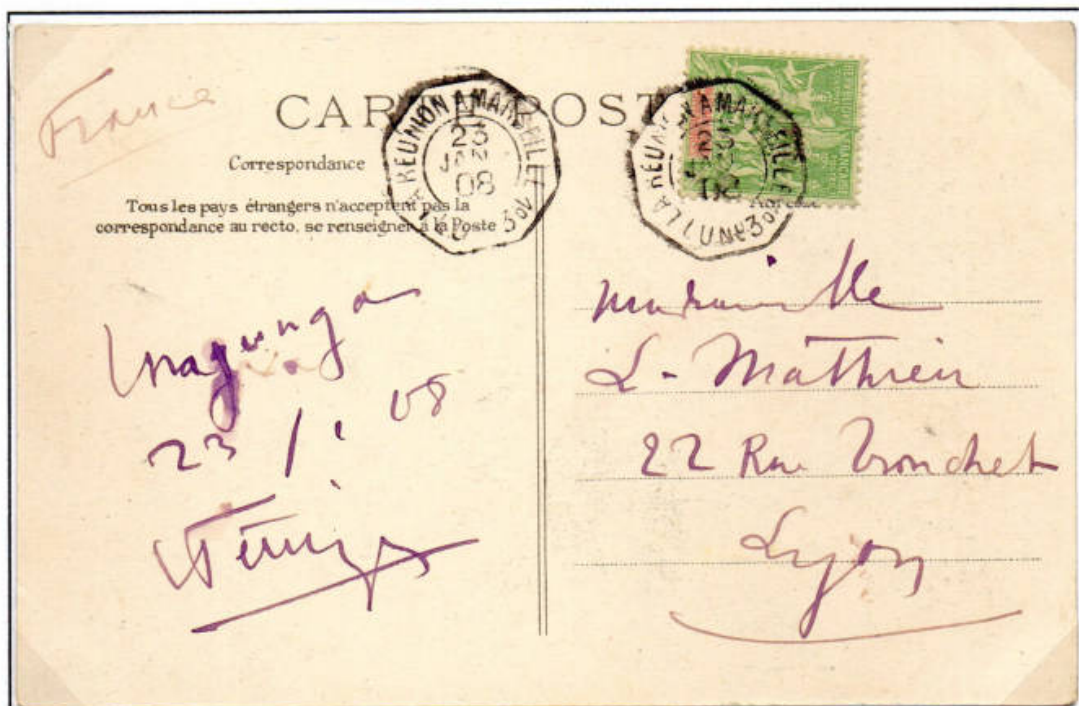 France
CARTE POSTALE
Correspondance
Tous les pays étrangers n'acceptent pas la
correspondance au recto, se renseigner à la Poste
LA RÉUNION A MARSEILLE
23
JANV
08
LA RÉUNION A MARSEILLE
Majunga
23 / 1 08
Mademoiselle
L. Mathieu
22 Rue Tronchet
Lyon